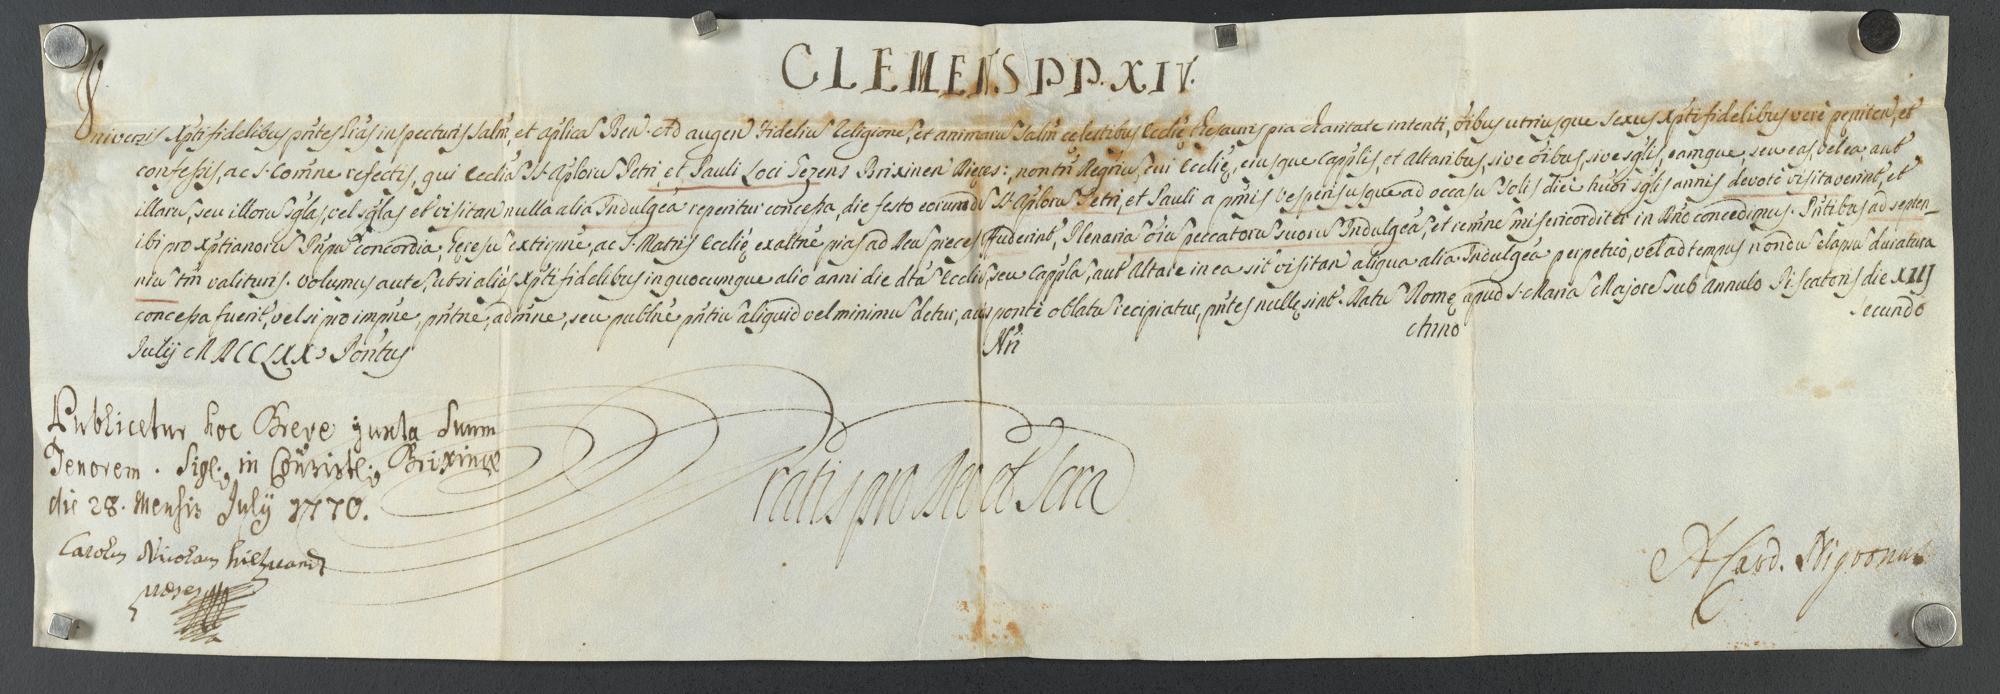 CLEMENS P.P. XIV.
Universis Xpti fidelibus pntes Lras inspecturis Salm, et aplicā Ben. Ad augen fideliū religionē, et animarū salm celestibus Ecclię thesauris pia charitate intenti, oibus utriusque sexus Xpti fidelibus verè pęniten, et
confessis, ac S. Comne refectis, qui Ecclīa SS. Aplorū Petri, et Pauli Loci Brixinen Dięces: cui Ecclię, eiusque Capplis, et Altaribus, sive oibus, sive sglis, eamque, seu eas, vel ea, aut
illorū, seu illorū sglas, vel sgla et visitan nulla alia Indulgēa reperitur concessa, die festo eorumd SS. Aplorū Petri, et Pauli a pmis vesperis usque ad occasū Solis diei hūoi sglis annis devotè visitaverint, et
ibi pro Xptianorū Pnpū concordia, hęresū extirpne, ac S. Matris Ecclię exaltne pias ad Deū preces effuderint, Plenariā oiū peccatorū suorū Indulgēa, et remne misericorditer in Dno concedimus. Pntibus ad septen-
niū tm valituris. Volumus autē, ut si aliàs Xpti fidelibus in quocumque alio anni die dtā Eccliā, seu Cappla, aut Altare in ea sit visitan aliqua alia Indulgēa perpetuò, vel ad tempus nondū elapsū duratura
concessa fuerit, vel si pro impne, pntne, admne, seu publne pntiū aliquid vel minimū detur, aut sponte oblatū recipiatur, pntes nullę sint. Datū Romę apud S. Mariā Majorē sub Annulo Piscatoris die XIII
Julij MDCCLXX. Pontus Nri Anno Secundo
Publicetur hoc Breve juxta suum
Tenorem. Sigl. in Consist. Brixinae
die 28. Mensis Julij 1770.
Carolus Nicolaus
Gratis pro Deo et Scra
A Card. Nigronus